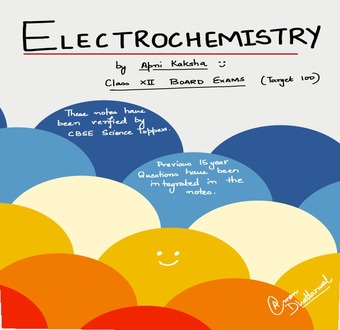 ELECTROCHEMISTRY
by Apni Kaksha
Class XII BOARD EXAMS (Target 100)
These notes have
been verified by
CBSE Science Toppers.
Previous 15 year
Questions have been
integrated in the
notes.
@man
Dhattarwal